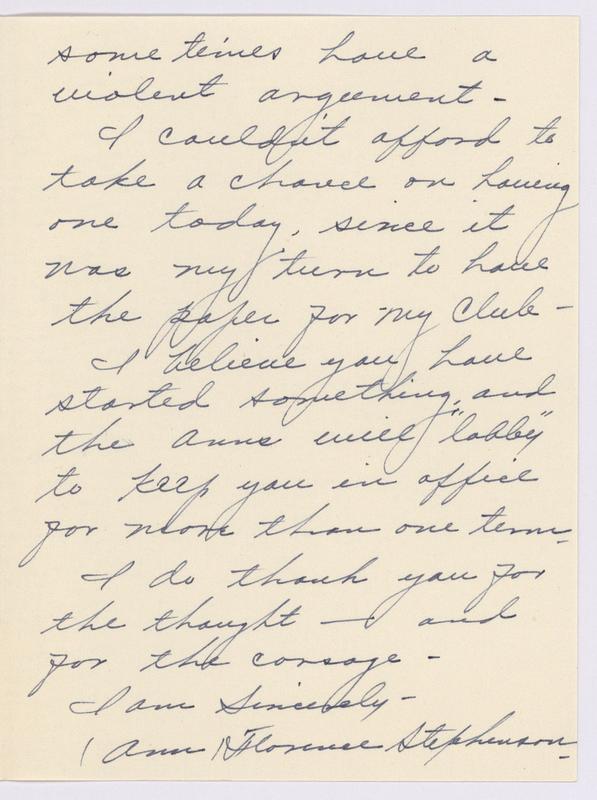 some times have a
violent arguement -
I couldn't afford to
take a chance on having
one today, since it
was my turn to have
the paper for my Club -
I believe you have
started something, and
the Anns will "lobby"
to keep you in office
for more than one term -
I do thank you for
the thought - and
for the corsage -
I am Sincerely -
(Ann) Florence Stephenson -